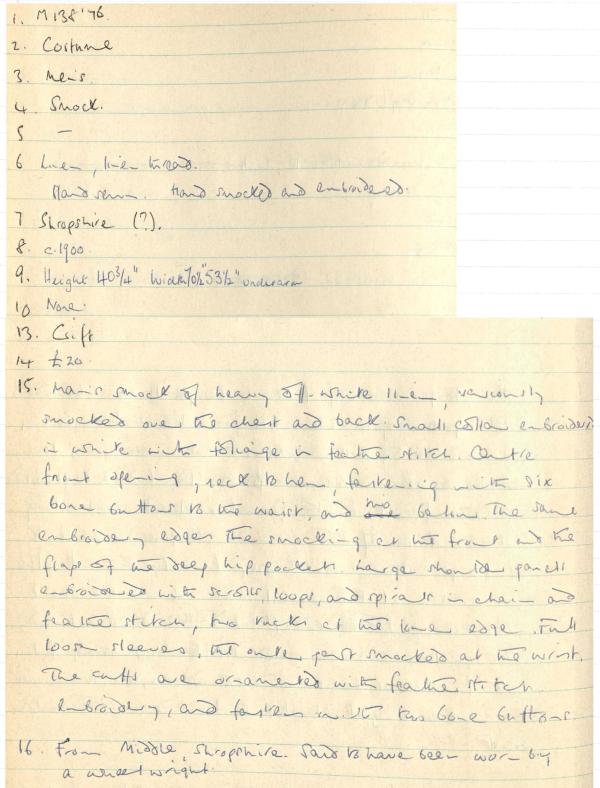 1. M138'76.
2. Costume
3. Men's.
4. Smock.
5 —
6 Linen, linen thread.
Hand sewn. Hand smocked and embroidered.
7 Shropshire (?).
8. c.1900
9. Height 40¾" Width 53½" underarm
10 None.
13. Gift
14 £20.
15. Man's smock of heavy off-white linen, variously
smocked over the chest and back. Small collar embroidered
in white with foliage in feather stitch. Centre
front opening, neck to hem, fastening with six
bone buttons to the waist, and two below. The same
embroidery edges the smocking at the front and the
flaps of the deep hip pockets. Large shoulder panels
embroidered with scrolls, loops, and spirals in chain and
feather stitch, two tucks at the lower edge. Full
loose sleeves, the outer part smocked at the wrist.
The cuffs are ornamented with feather stitch
embroidery, and fasten with two bone buttons.
16. From Middle, Shropshire. Said to have been worn by
a wheelwright.